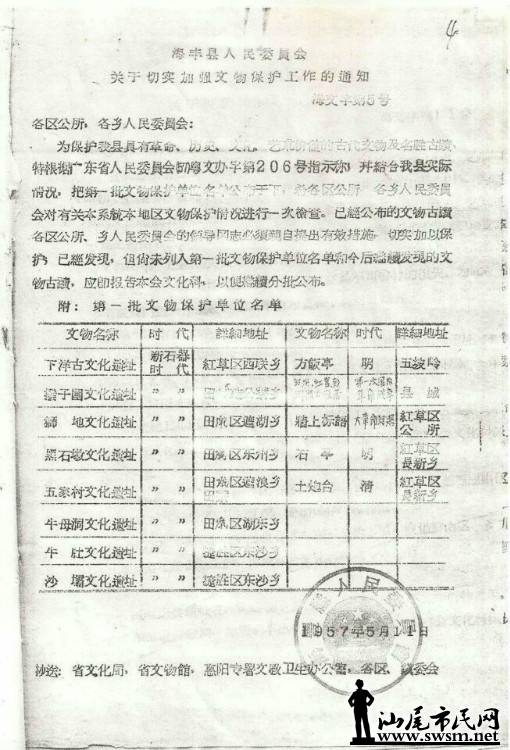 4
海丰县人民委員会
关于切实加强文物保护工作的通知
海文字第5号
各区公所，各乡人民委員会：
为保护我县具有革命、历史、文化、艺术价值的古代文物及名胜古蹟，
特根据广东省人民委員会 粤文办字第206号指示 并結合我县实际
情况，把第一批文物保护单位名单公布于下，各区公所、各乡人民委員
会对有关本系統本地区文物保护情况进行一次檢查。已經公布的文物古蹟
各区公所、乡人民委員会的領导同志必須 提出有效措施，切实加以保
护；已經发现，但尚未列入第一批文物保护单位名单和今后繼續发现的文
物古蹟，应即报告本会文化科，以便繼續分批公布。
附：第一批文物保护单位名单
文物名称 时代 詳細地址 文物名称 时代 詳細地址
下洋古文化遗址 新石器时代 紅草区西联乡 方飯亭 明 五坡岭
子圍文化遗址 〃 〃 田 县城
地文化遗址 〃 〃 田墘区 湖乡 墙上标語 大革命 紅草区公所
黑石墩文化遗址 〃 〃 田墘区东州乡 石亭 明 紅草区長新乡
五家村文化遗址 〃 〃 田墘区 乡 土炮台 清 紅草区長新乡
牛母洞文化遗址 〃 〃 田墘区湖东乡
牛肚文化遗址 〃 〃 捷胜区东沙乡
沙壩文化遗址 〃 〃 捷胜区东沙乡
1957年5月11日
抄送：省文化局，省文物館，惠阳专署文敎卫生办公室，各区， 委会
汕尾市民网
www.swsm.net